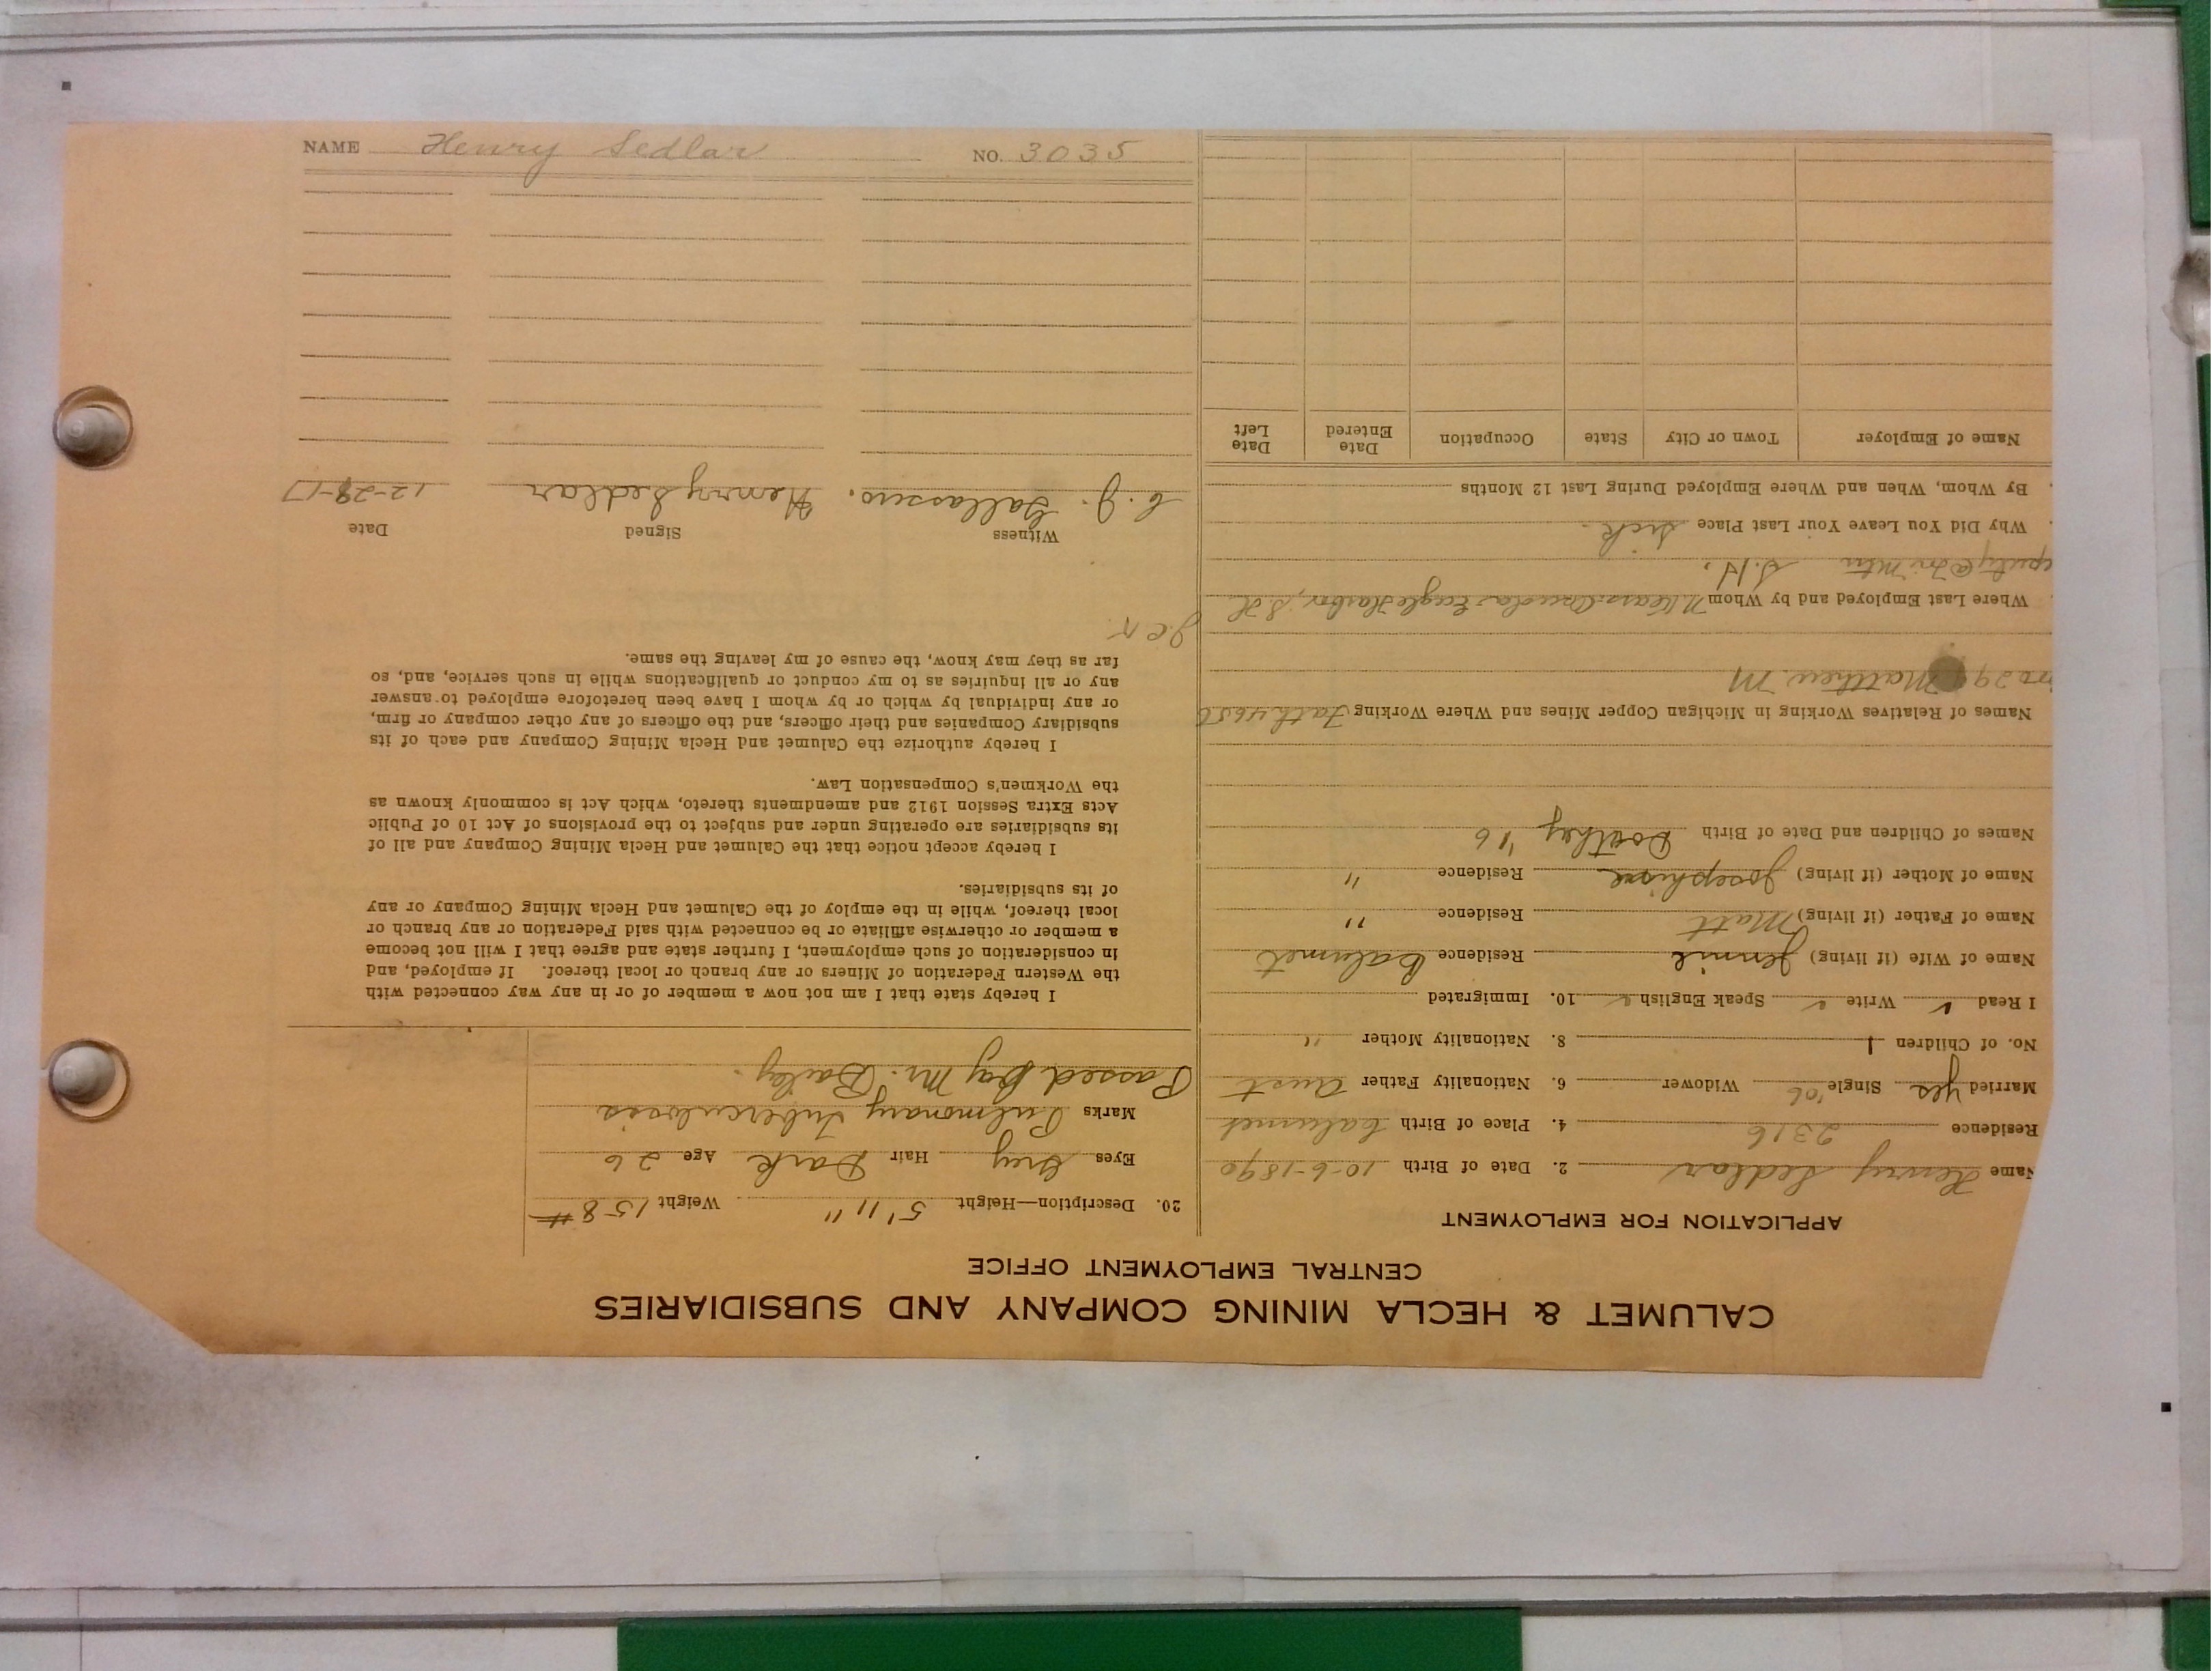 CALUMET & HECLA MINING COMPANY AND SUBSIDIARIES
CENTRAL EMPLOYMENT OFFICE
APPLICATION FOR EMPLOYMENT
Name Henry Sedlar 2. Date of Birth 10-6-1890
Residence 2316 4. Place of Birth Calumet
Married yes Single '06 Widower 6. Nationality Father Aust
No. of Children 1 8. Nationality Mother "
I Read ✓ Write ✓ Speak English ✓ 10. Immigrated
Name of Wife (if living) Jennie Residence Calumet
Name of Father (if living) Matt Residence "
Name of Mother (if living) Josephine Residence "
Names of Children and Date of Birth Dorthey '16
Names of Relatives Working in Michigan Copper Mines and Where Working Fath
Matthew M
Where Last Employed and by Whom Eagle Harbor, S.H.
@ Tri Mtn S.H.
Why Did You Leave Your Last Place Sick.
By Whom, When and Where Employed During Last 12 Months
Name of Employer Town or City State Occupation Date Entered Date Left
20. Description—Height 5'11" Weight 158#
Eyes Grey Hair Dark Age 26
Marks Pulmonary Tuberculosis
Passed By Mr. Bailey.
I hereby state that I am not now a member of or in any way connected with
the Western Federation of Miners or any branch or local thereof. If employed, and
in consideration of such employment, I further state and agree that I will not become
a member or otherwise affiliate or be connected with said Federation or any branch or
local thereof, while in the employ of the Calumet and Hecla Mining Company or any
of its subsidiaries.
I hereby accept notice that the Calumet and Hecla Mining Company and all of
its subsidiaries are operating under and subject to the provisions of Act 10 of Public
Acts Extra Session 1912 and amendments thereto, which Act is commonly known as
the Workmen's Compensation Law.
I hereby authorize the Calumet and Hecla Mining Company and each of its
subsidiary Companies and their officers, and the officers of any other company or firm,
or any individual by which or by whom I have been heretofore employed to answer
any or all inquiries as to my conduct or qualifications while in such service, and, so
far as they may know, the cause of my leaving the same.
Witness Signed Date
Henry Sedlar 12-28-17
NAME Henry Sedlar NO. 3035